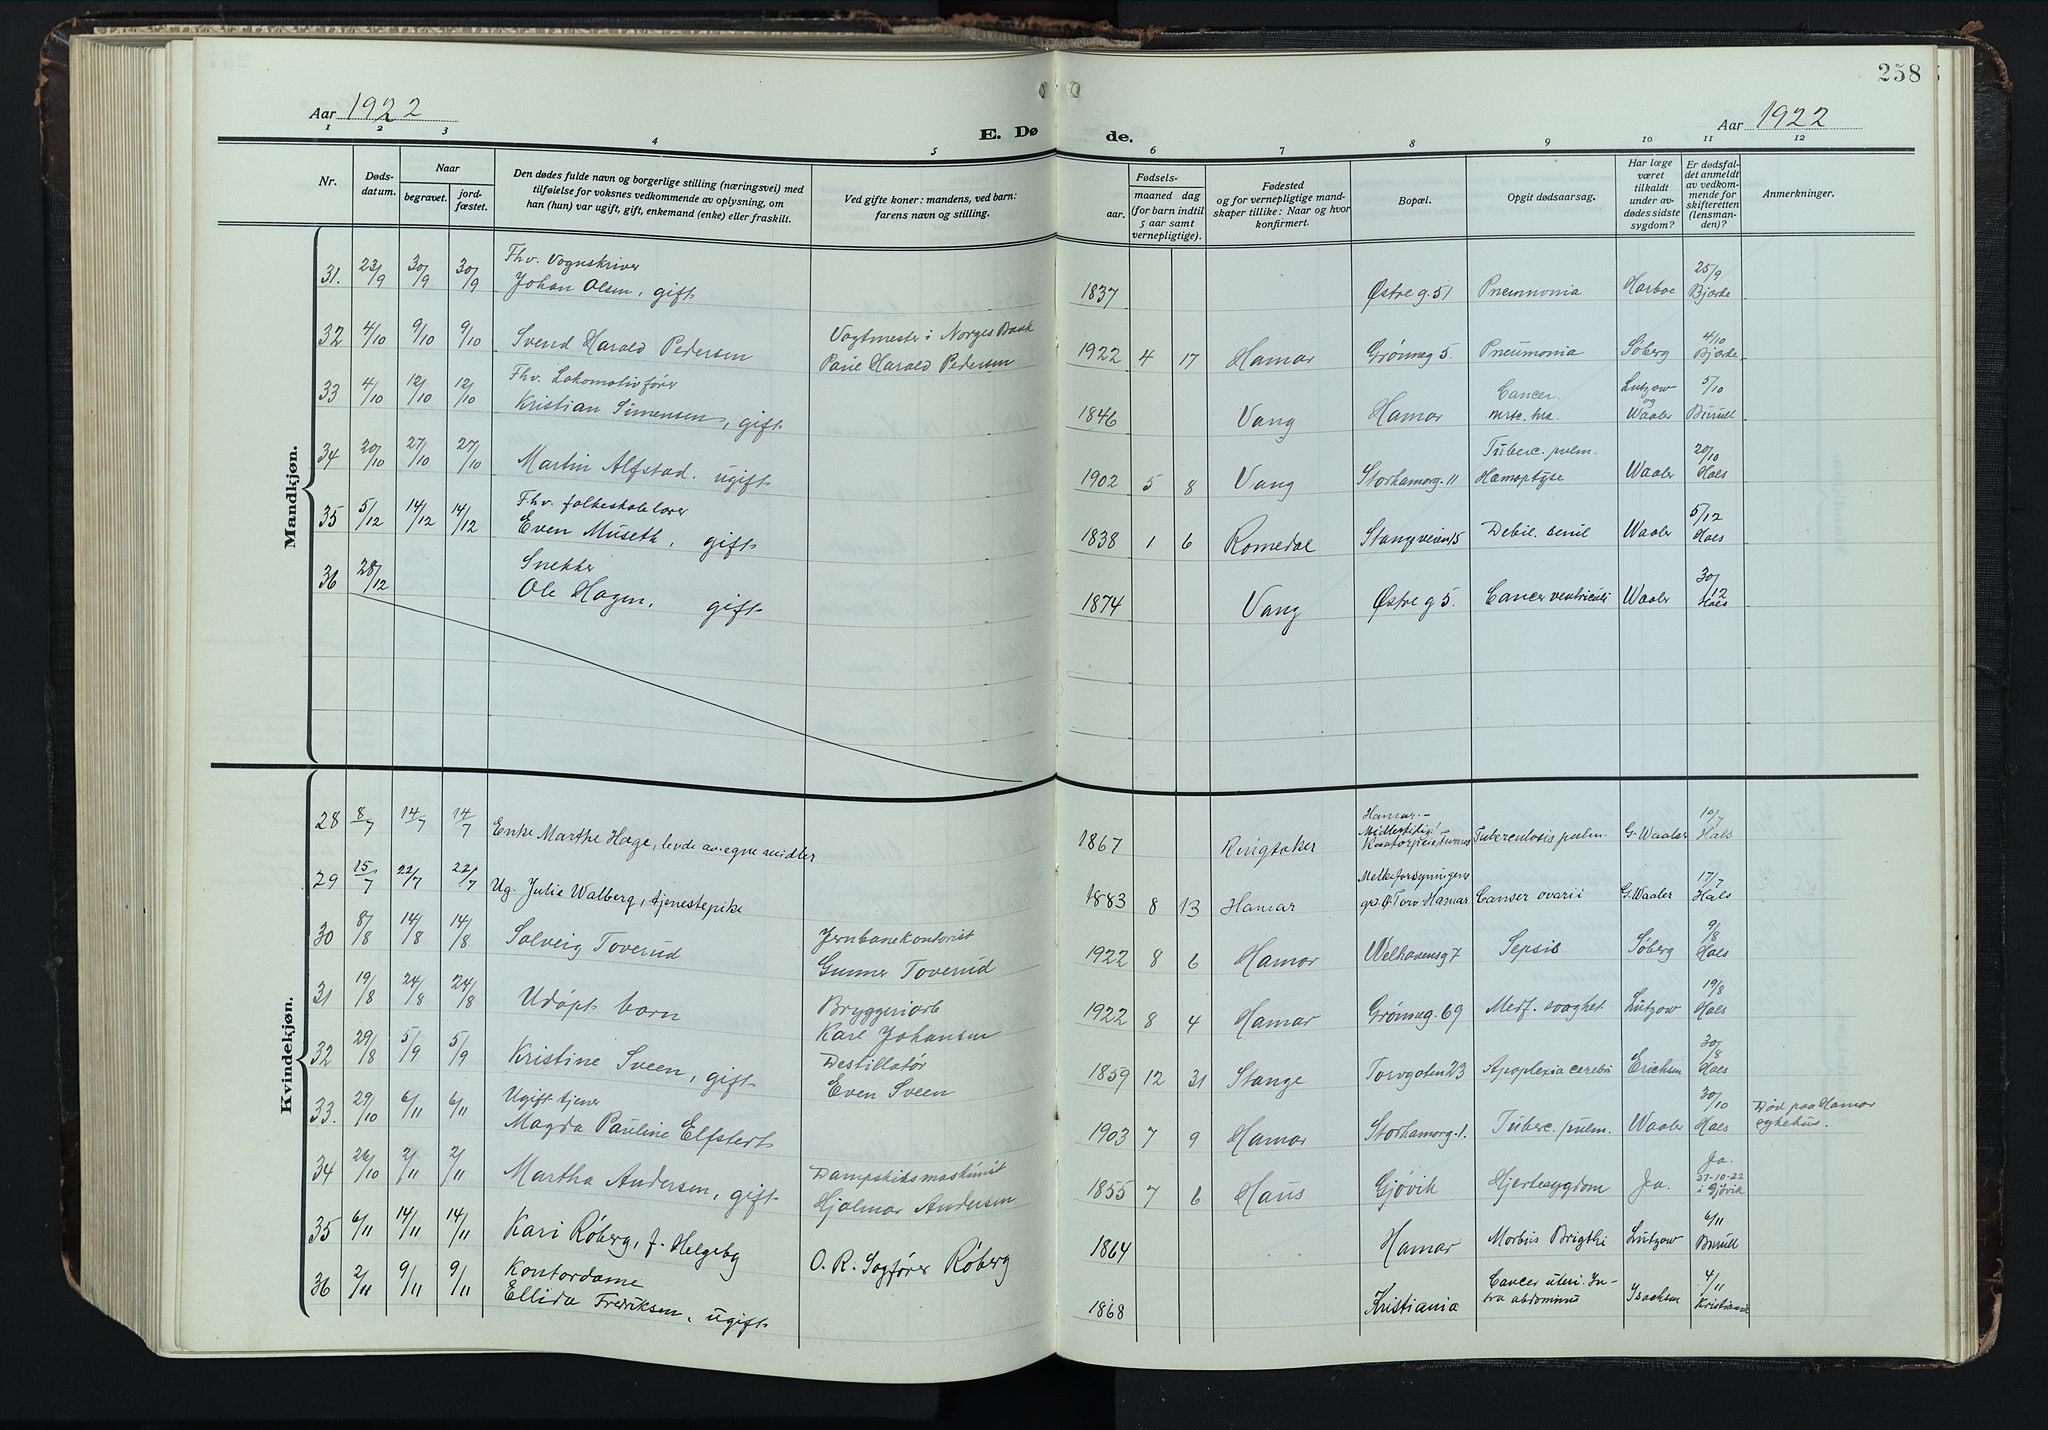 258
Aar 1922
Aar 1922
E. Døde.
1 2 3 4 5 6 7 8 9 10 11 12
Nr.
Dødsdatum.
Naar
begravet.
jordfæstet.
Den dødes fulde navn og borgerlige stilling (næringsvei) med
tilføielse for voksnes vedkommende av oplysning, om
han (hun) var ugift, gift, enkemand (enke) eller fraskilt.
Ved gifte koner: mandens, ved barn:
farens navn og stilling.
Fødsels-
aar.
maaned dag
(for barn indtil
5 aar samt
vernepligtige).
Fødested
og for vernepligtige mand-
skaper tillike: Naar og hvor
konfirmert.
Bopæl.
Opgit dødsaarsag.
Har læge
været
tilkaldt
under av-
dødes sidste
sygdom?
Er dødsfal-
det anmeldt
av vedkom-
mende for
skifteretten
(lensman-
den)?
Anmerkninger.
Mandkjøn.
31. 23/9 30/9 30/9 Fhv. Vognskriver
Johan Olsen, gift 1837 Østre g. 51 Pneumonia Harboe 25/9 Bjerke
32 4/10 9/10 9/10 Svend Harald Pedersen Vagtmester i Norges Bank
Harald Pedersen 1922 4 17 Hamar Grønneg 5. Pneumonia Søberg 4/10 Bjerke
33 4/10 12/10 12/10 Fhv. Lokomotivfører
Kristian Simensen, gift 1846 Vang Hamar Cancer Lutzow og Waaler 5/10
34 20/10 27/10 27/10 Martin Alfstad. ugift 1902 5 8 Vang Storhamarg. 11 Tuberc. pulm. Hæmoptyse Waaler 20/10 Hals
35 5/12 14/12 14/12 Fhv. folkeskolelærer
Even Museth, gift 1838 1 6 Romedal Stangveien 15 Debil. senil Waaler 5/12 Hals
36 28/12 Snekker
Ole Hagen, gift 1874 Vang Østre g 5. Cancer ventriculi Waaler 30/12 Hals
Kvindekjøn.
28 8/7 14/7 14/7 Enke Marthe Hage, levde av egne midler 1867 Ringsaker Hamar.- Midlertidig: Tuberculosis pulm. G. Waaler 10/7 Hals
29 15/7 22/7 22/7 Ug. Julie Walberg, tjenestepike 1883 8 13 Hamar Melkeforsyningens gd. Ø Torv Hamar Canser ovarii G. Waaler 17/7 Hals
30 8/8 14/8 14/8 Solveig Toverud Jernbanekontorist
Gunnar Toverud 1922 8 6 Hamar Welhavensg 7 Sepsis Søberg 9/8 Hals
31 19/8 24/8 24/8 Udøpt barn Bryggeriarb
Karl Johansen 1922 8 4 Hamar Grønneg. 69 Medf. svaghet Lützow 19/8 Hals
32 29/8 5/9 5/9 Kristine Sveen, gift Destillatør
Even Sveen 1859 12 31 Stange Torvgaten 23 Apoplexia cerebi Ericksen 30/8 Hals
33. 29/10 6/11 6/11 Ugift tjener
Magda Pauline Elfstert 1903 7 9 Hamar Storhamarg. 1. Tuberc. pulm. Waaler 30/10 Hals Død paa Hamar sykehus.
34 26/10 2/11 2/11 Martha Andersen, gift Dampskibsmaskinist
Hjalmar Andersen 1855 7 6 Haus Gjøvik Hjertesygdom Ja. Ja. 27-10-22 i Gjøvik
35 6/11 14/11 14/11 Kari Røberg, f. Helgeby O. R. Sagfører Røberg 1864 Hamar Morbus Brigthi Lutzow 6/11
36 2/11 9/11 9/11 Kontordame
Ellida Fredriksen, ugift 1868 Kristiania Cancer uteri. In-
tra abdominus Isachsen 4/11 Kristiania